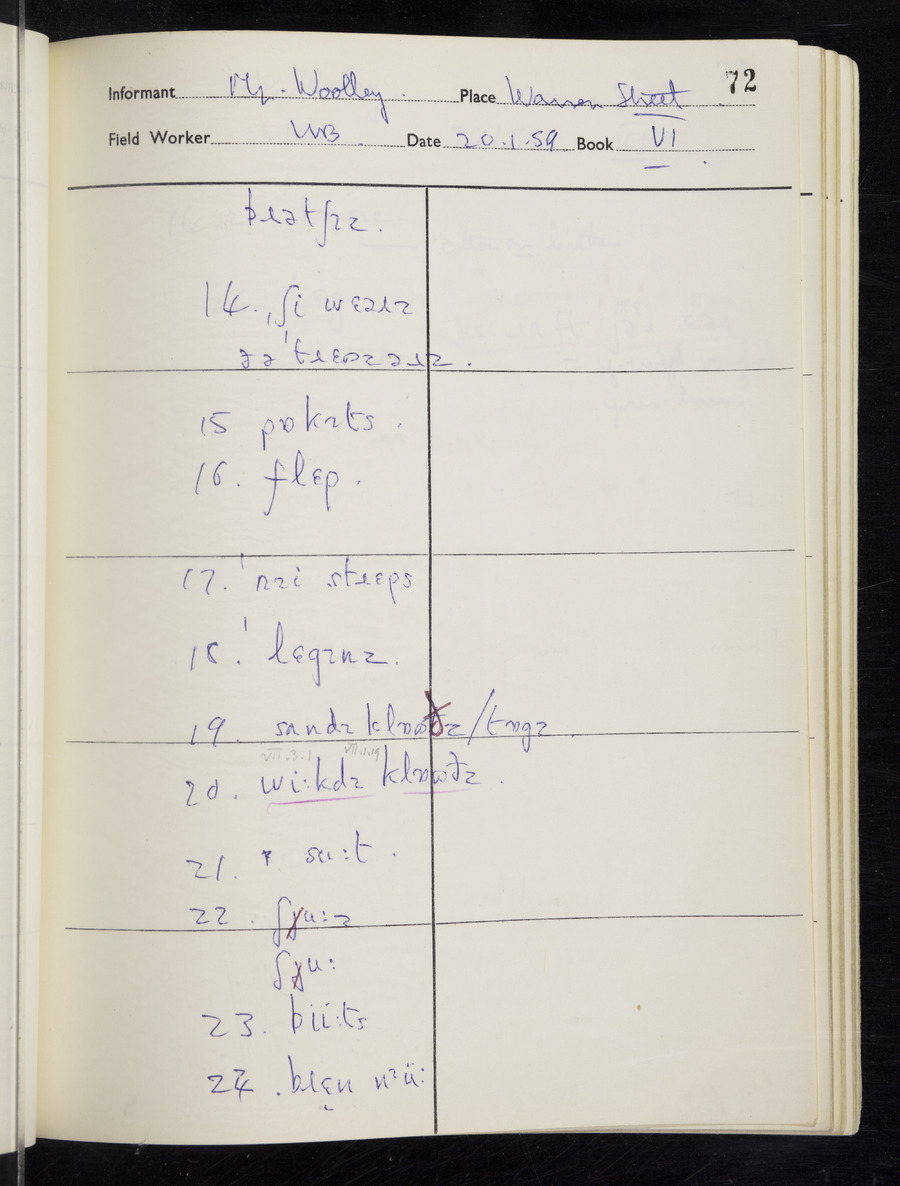 72
Informant Mr. Woolley. Place Warren Street
Field Worker WB. Date 20.1.59 Book VI
14. ˌʃi wɛəɹz
15 pɒkɪts.
16. flɛp.
17. ˈnɪi stɹɛps
18. ˈlɛgɪnz.
19. sandɪ klɒʊðz/tɒgz
VII.3.1 VII.1.19
20. wi:kdɪ klɒʊðz.
21. su:t.
22. ʃɟu:z
ʃɟu:
23. bïï:ts
24. bɹɛn nɪü: